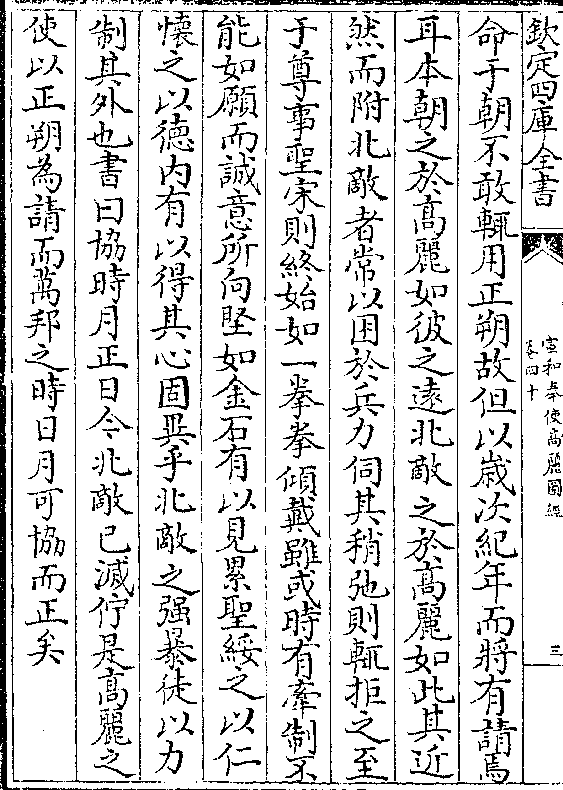 欽定四庫全書
宣和奉使髙麗圖經
卷四十
三
命于朝不敢輒用正朔故但以歲次紀年而將有請焉
耳本朝之於髙麗如彼之遠北敵之於髙麗如此其近
然而附北敵者常以困於兵力伺其稍弛則輒拒之至
于尊事聖宋則終始如一拳拳傾戴雖或時有牽制不
能如願而誠意所向堅如金石有以見累聖綏之以仁
懐之以徳内有以得其心固異乎北敵之强暴徒以力
制其外也書曰協時月正日今北敵已滅佇是髙麗之
使以正朔為請而萬邦之時日月可協而正矣